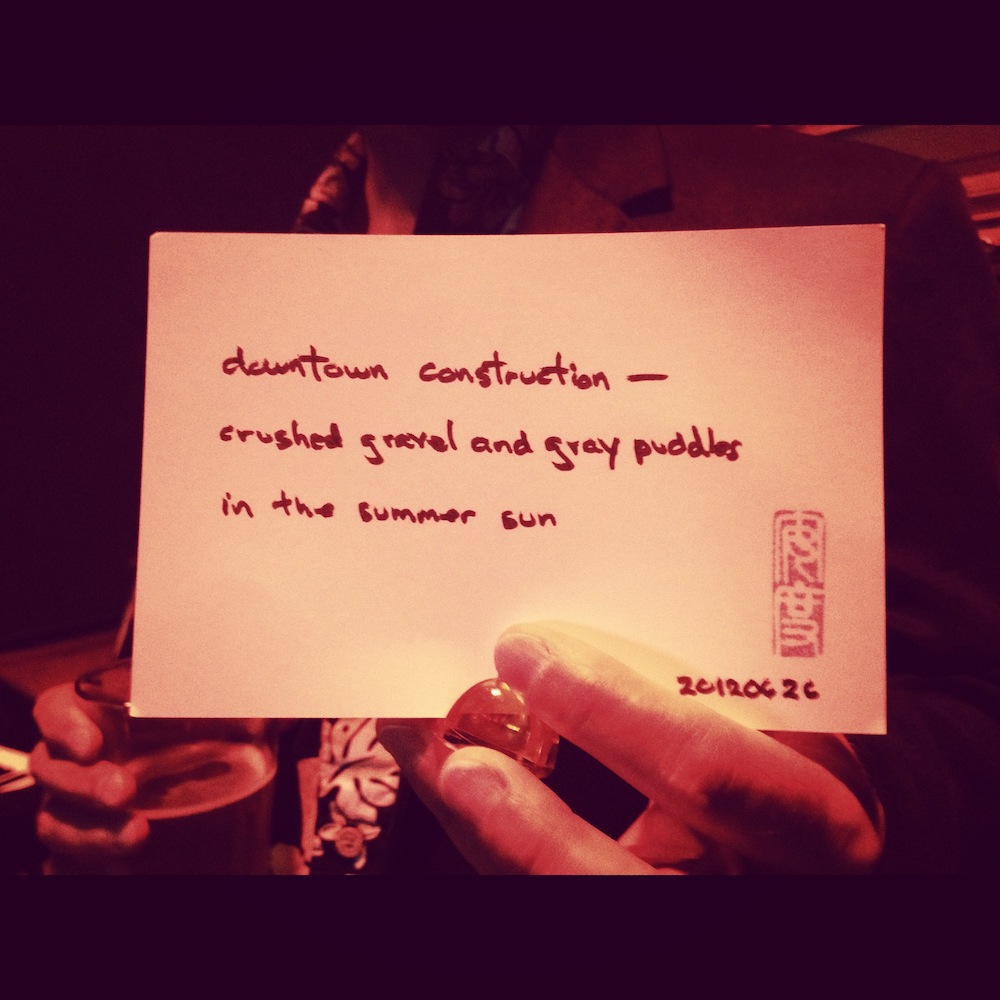 downtown construction —
crushed gravel and gray puddles
in the summer sun
20120626